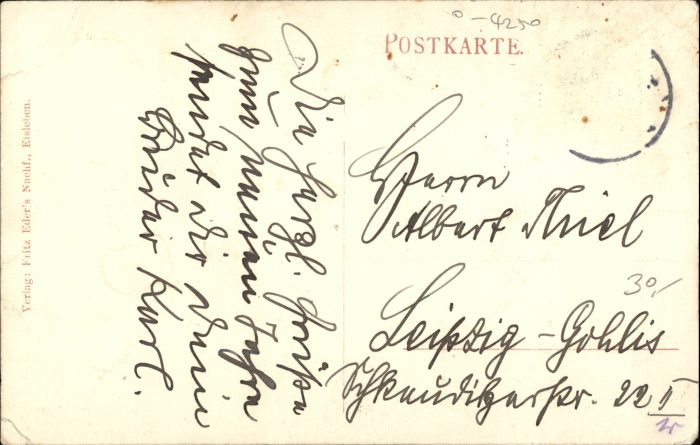 0-4250
POSTKARTE.
Die herzl. Grüße
zum neuen Jahre
sendet dir dein
Bruder Karl.
Herrn
Albert Thiel
30,-
Leipzig-Gohlis
Schkeuditzerstr. 22 II
Verlag: Fritz Eder's Nachf., Eisleben.